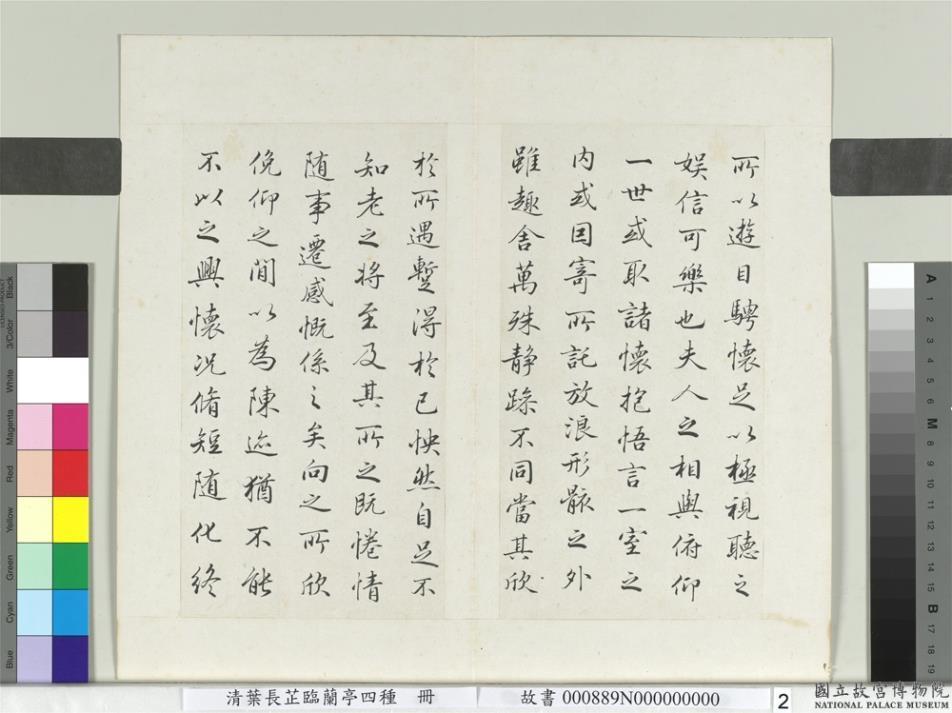 所以遊目騁懷足以極視聽之
娛信可樂也夫人之相與俯仰
一世或取諸懷抱悟言一室之
內或因寄所託放浪形骸之外
雖趣舍萬殊静躁不同當其欣
於所遇暫得於已怏然自足不
知老之將至及其所之既惓情
随事遷感慨係之矣向之所欣
俛仰之閒以為陳迹猶不能
不以之興懷况脩短随化終
Black
3/Color
White
Magenta
Red
Yellow
Green
Cyan
Blue
A 1 2 3 4 5 6 M 8 9 10 11 12 13 14 15 B 17 18 19
清葉長芷臨蘭亭四種 冊
故書 000889N000000000
2
國立故宮博物院
NATIONAL PALACE MUSEUM